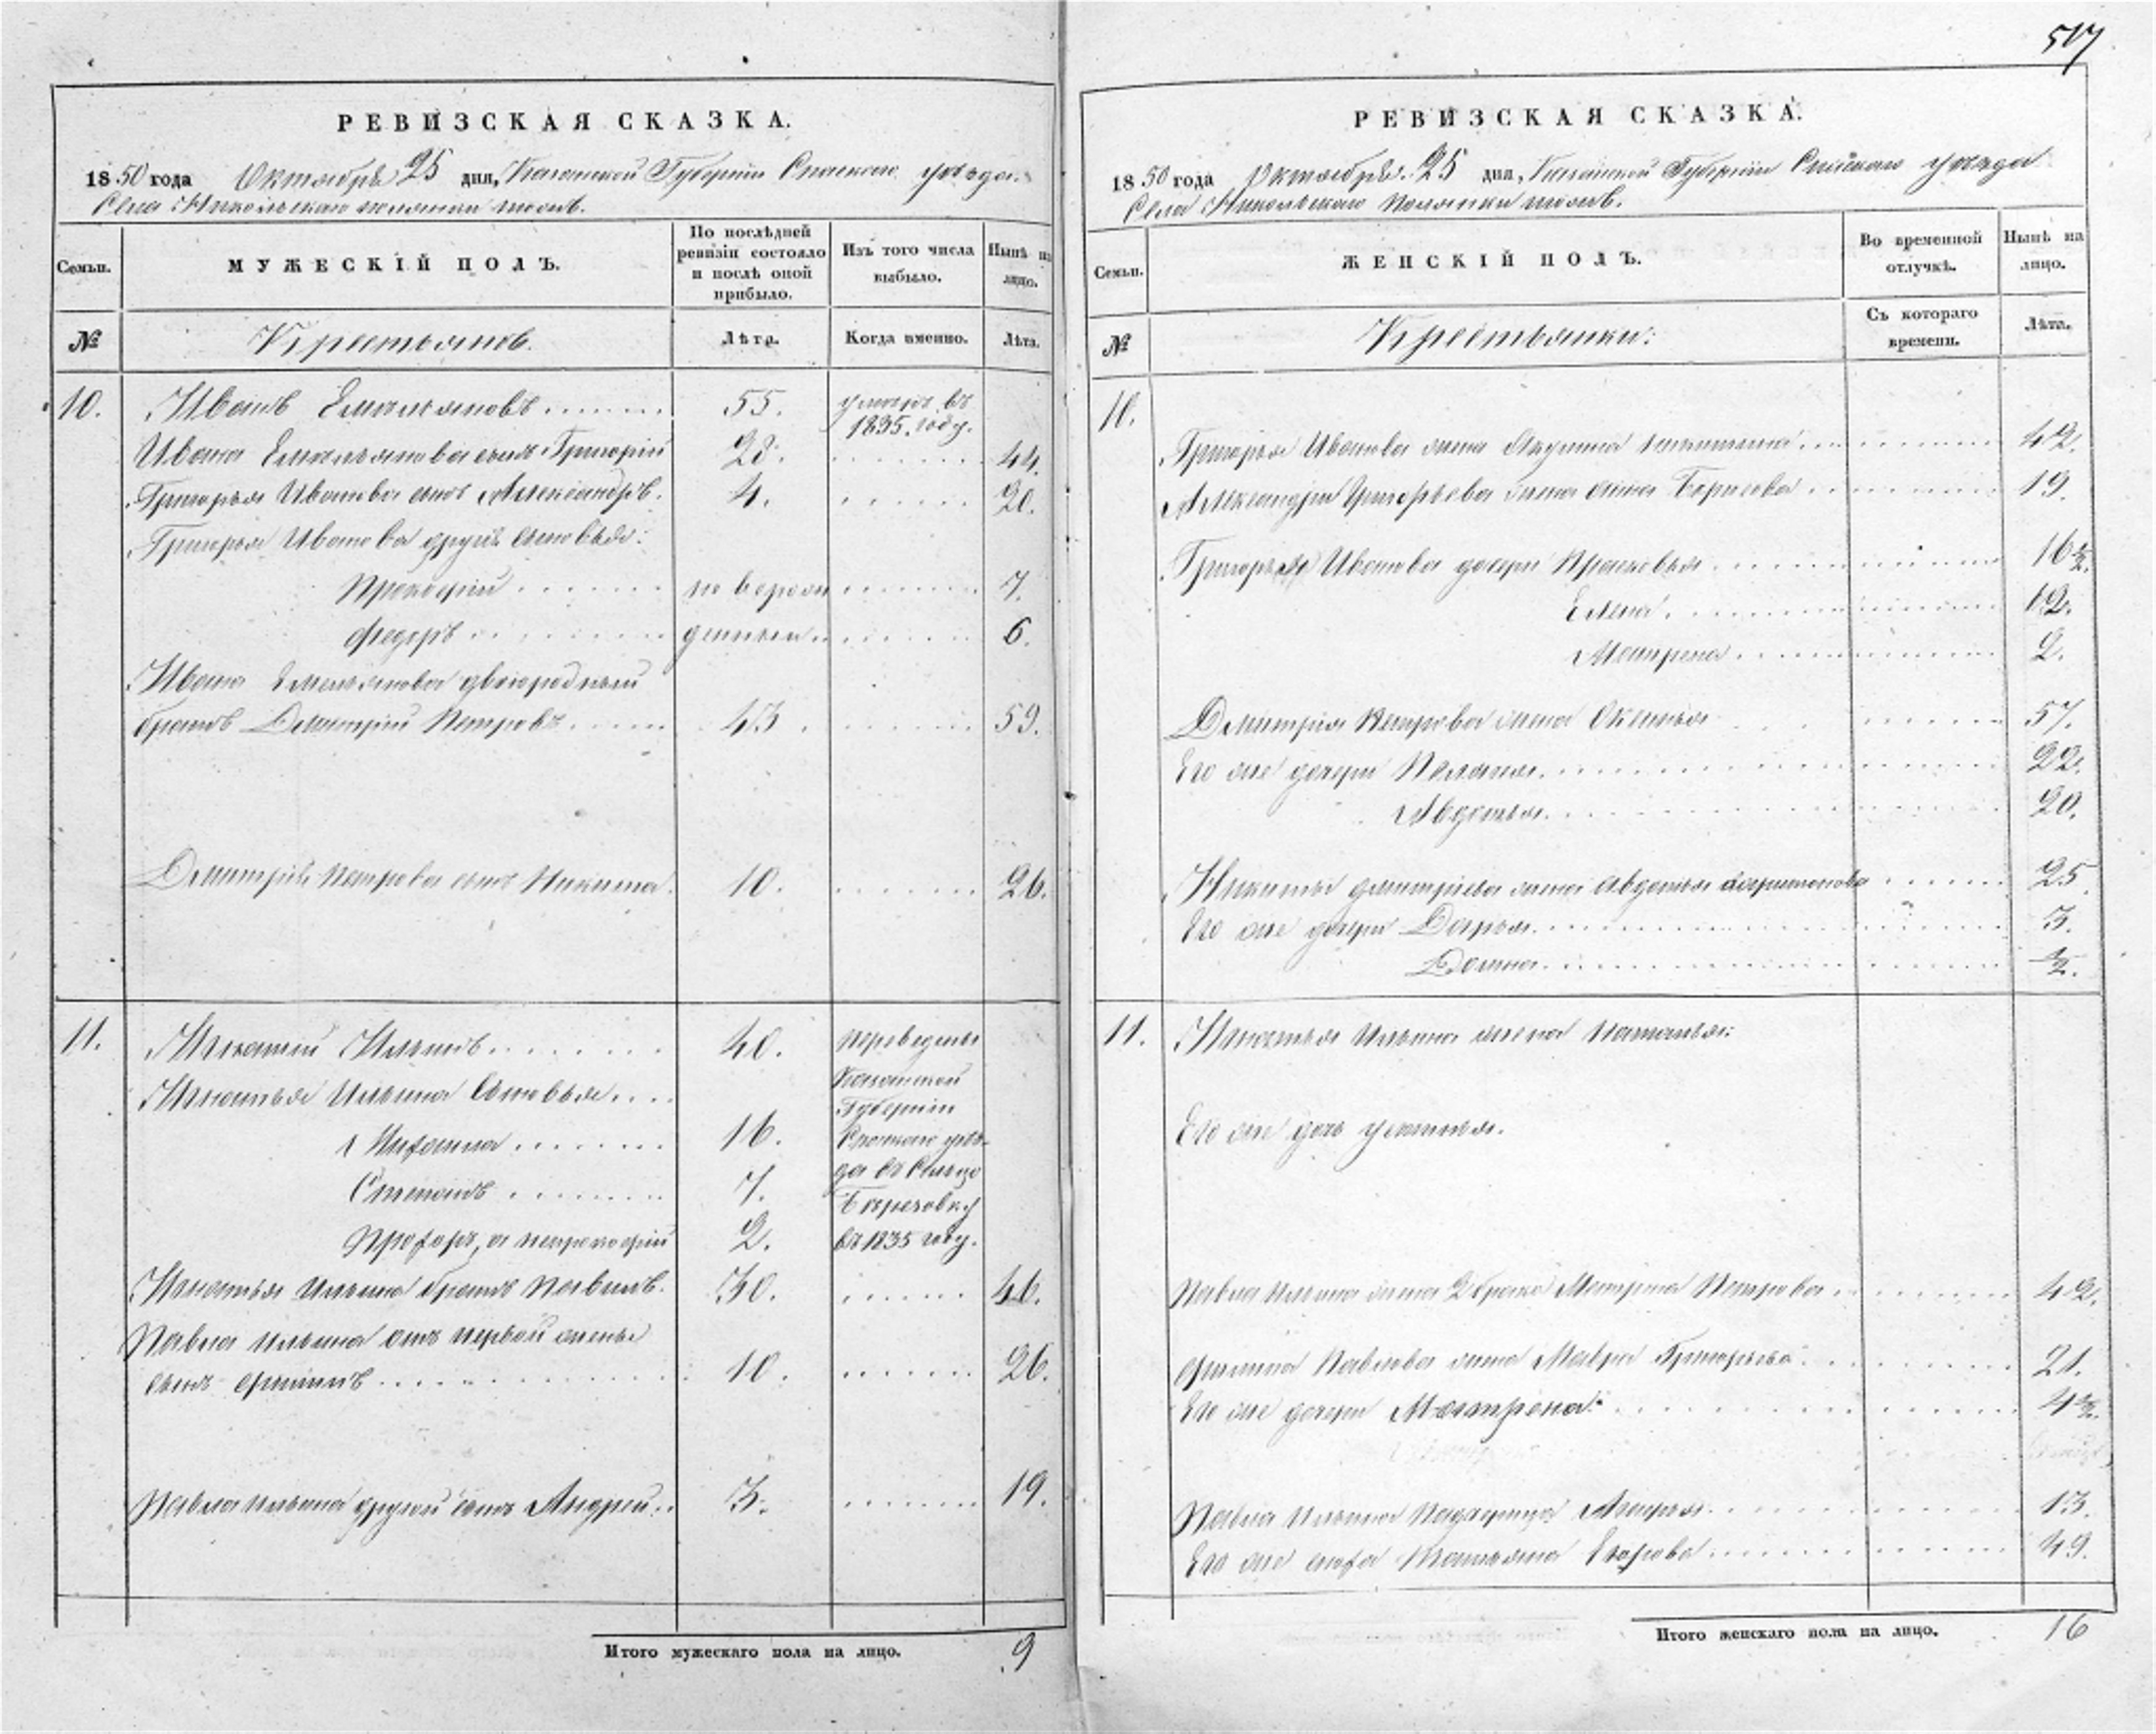 517
РЕВИЗСКАЯ СКАЗКА.
1850 года Октября 25 дня, Казанской Губерніи Спаскаго уѣзда
Села Никольскаго
Семьи.
МУЖЕСКІЙ ПОЛЪ.
По послѣдней ревизіи состояло и послѣ оной прибыло.
Изъ того числа выбыло.
Нынѣ на лицо.
№
Крестьяновъ.
Лѣта.
Когда именно.
Лѣта.
10. Иванъ Емельяновъ 55. умеръ въ 1835. году.
Ивана Емельянова сынъ Григорій 28. 44.
Григорья Иванова сынъ Александръ. 4. 20.
Григорья Иванова другіе сыновья:
Прокофій 7.
Федоръ 6.
Ивана Емельянова двоюродный
братъ Дмитрій Петровъ 43. 59.
Дмитрія Петрова сынъ Никита. 10. 26.
11. Игнатій Ильинъ 40. переведены
Игнатья Ильина Сыновья Казанской Губерніи
Михаила 16. Спаскаго уѣзда
Степанъ 7. въ Сельцо
Прохоръ, а 2. Березовку въ 1835 году.
Игнатья Ильина братъ Павелъ. 30. 46.
Павла Ильина отъ первой жены
сынъ Филипъ 10. 26.
Павла Ильина другой сынъ Андрей 3. 19.
Итого мужескаго пола на лицо. 9
РЕВИЗСКАЯ СКАЗКА.
1850 года Октября 25 дня, Казанской Губерніи Спаскаго уѣзда
Села Никольскаго
Семьи.
ЖЕНСКІЙ ПОЛЪ.
Во временной отлучкѣ.
Нынѣ на лицо.
№
Крестьянки:
Съ котораго времени.
Лѣта.
10.
Григорья Иванова жена Акулина 42.
Александра Григорьева жена Анна Борисова 19.
Григорья Иванова дочери Прасковья 16½
Елена 12.
Матрена 2.
Дмитрія Петрова жена 57.
Его же дочери Пелагея 22.
Авдотья 20.
Никиты Дмитріева жена Авдотья 25
Его же дочери Дарья 3.
Домна ½.
11. Игнатья Ильина жена Наталья:
Его же дочь Устинья.
Павла Ильина жена 2 брака Матрена Петрова 42.
Филипа Павлова жена Мавра Григорьева 21.
Его же дочери Матрена 4½.
Павла Ильина Падчерица 13.
Его же сноха Татьяна Егорова 49.
Итого женскаго пола на лицо. 16